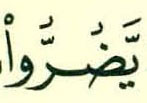 يَّضُرُّوا۟